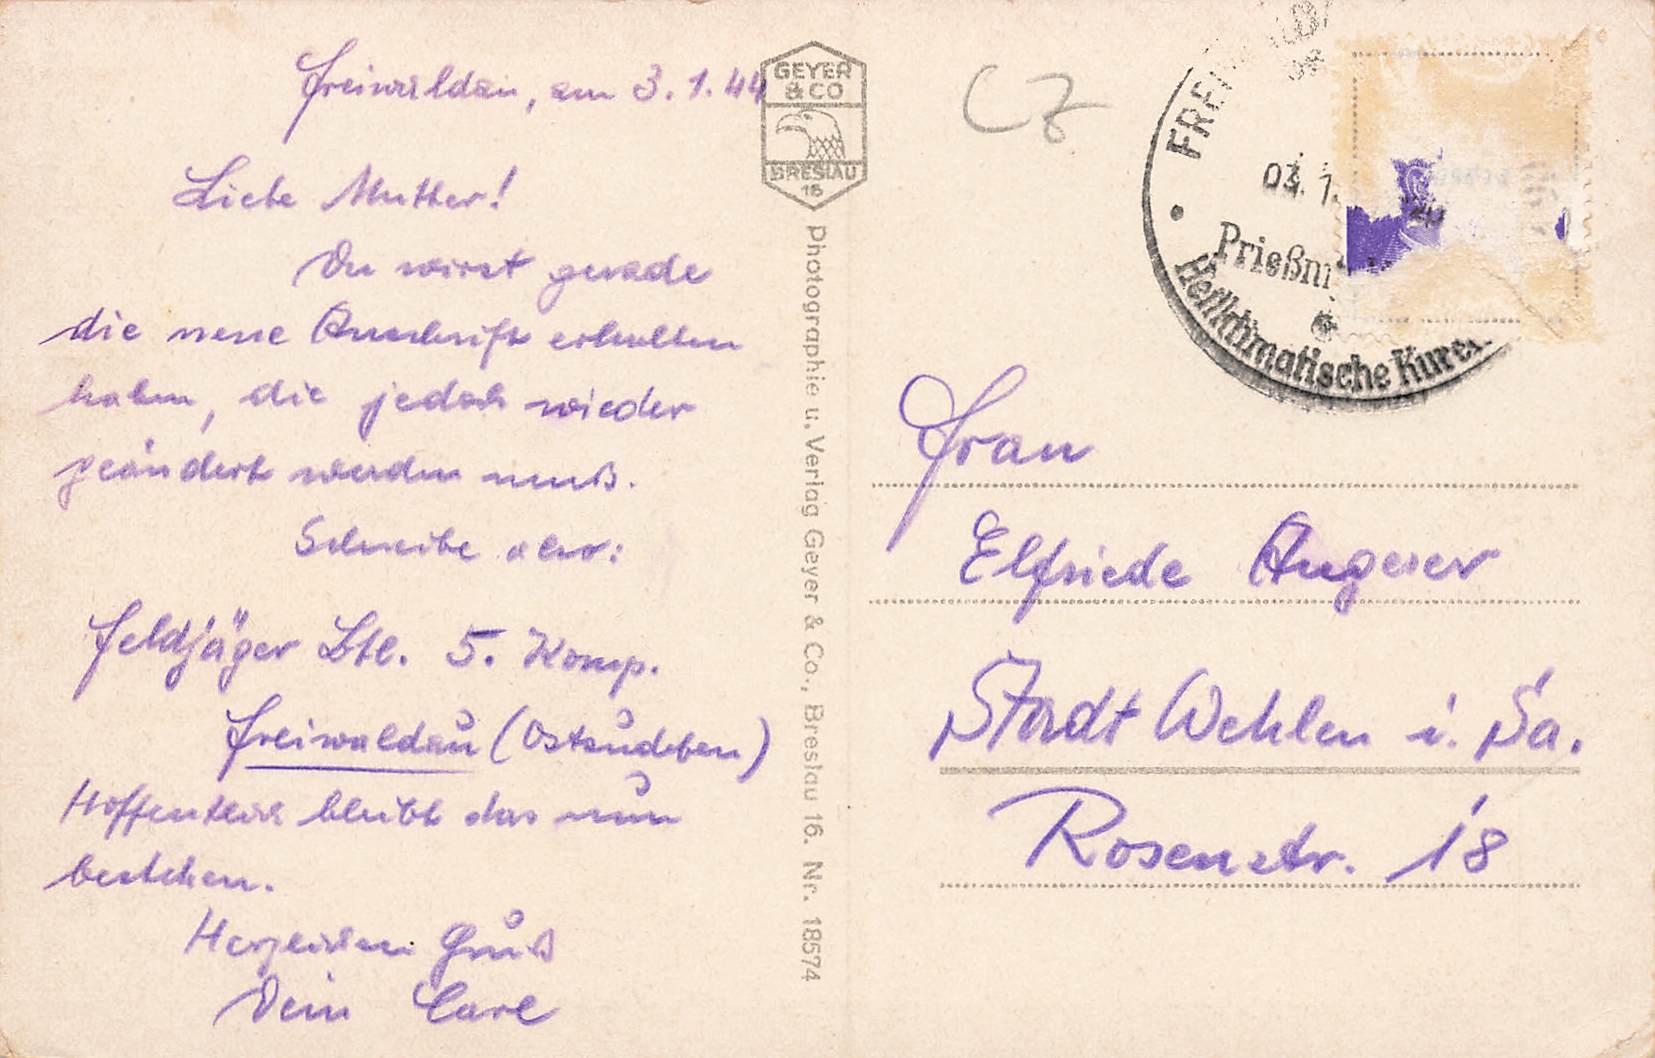 Freiwaldau, am 3.1.44
Liebe Mutter!
Du wirst gerade
die neue Anschrift erhalten
haben, die jedoch wieder
geändert werden muß.
Schreibe also:
Feldjäger Btl. 5. Komp.
Freiwaldau (Ostsudeten)
Hoffentlich bleibt das nun
bestehen.
Herzlichen Gruß
Dein
GEYER
& CO
BRESLAU
16
Photographie u. Verlag Geyer & Co., Breslau 16. Nr. 18574
CZ
03. 1.
Heilklimatische
Frau
Elfriede
Stadt Wehlen i. Sa.
Rosenstr. 18